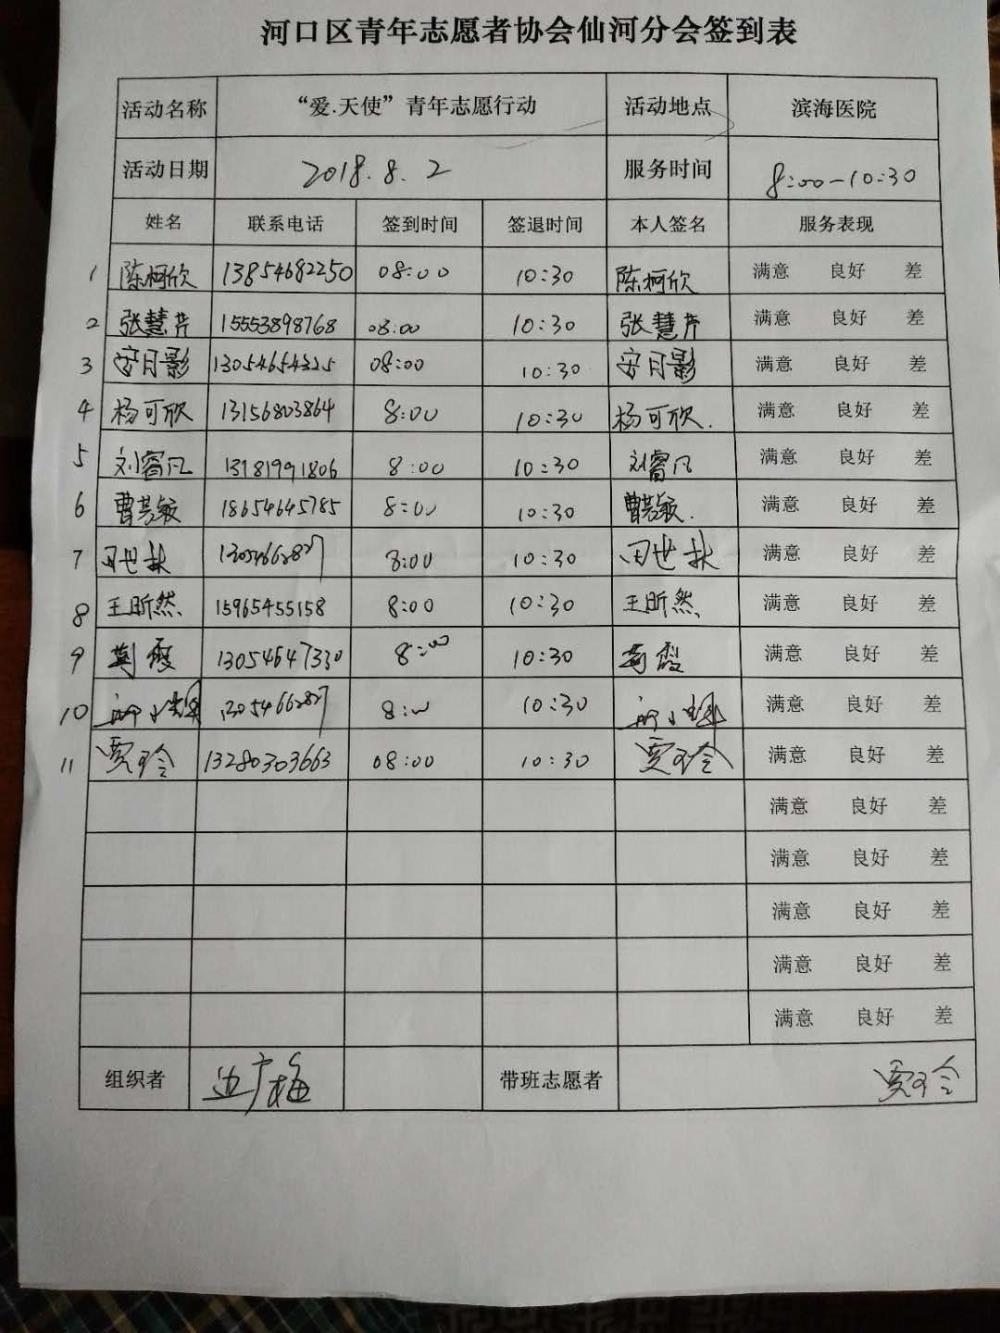 河口区青年志愿者协会仙河分会签到表
活动名称 “爱.天使”青年志愿行动 活动地点 滨海医院
活动日期 2018.8.2 服务时间 8:00-10:30
姓名 联系电话 签到时间 签退时间 本人签名 服务表现
1 陈柯欣 13854682250 08:00 10:30 陈柯欣 满意 良好 差
2 张慧芹 15553898768 08:00 10:30 张慧芹 满意 良好 差
3 安月影 13054654325 08:00 10:30 安月影 满意 良好 差
4 杨可欣 13156803864 8:00 10:30 杨可欣. 满意 良好 差
5 刘睿凡 13181991806 8:00 10:30 刘睿凡 满意 良好 差
6 曹芸敏 18654645785 8:00 10:30 曹芸敏. 满意 良好 差
7 田世林 8:00 10:30 田世林 满意 良好 差
8 王昕然 15965455158 8:00 10:30 王昕然 满意 良好 差
9 霞 13054647330 8:00 10:30 霞 满意 良好 差
10 13054662827 8:00 10:30 满意 良好 差
11 贾玲 13280303663 08:00 10:30 贾玲 满意 良好 差
满意 良好 差
满意 良好 差
满意 良好 差
满意 良好 差
满意 良好 差
组织者 边广梅 带班志愿者 贾玲